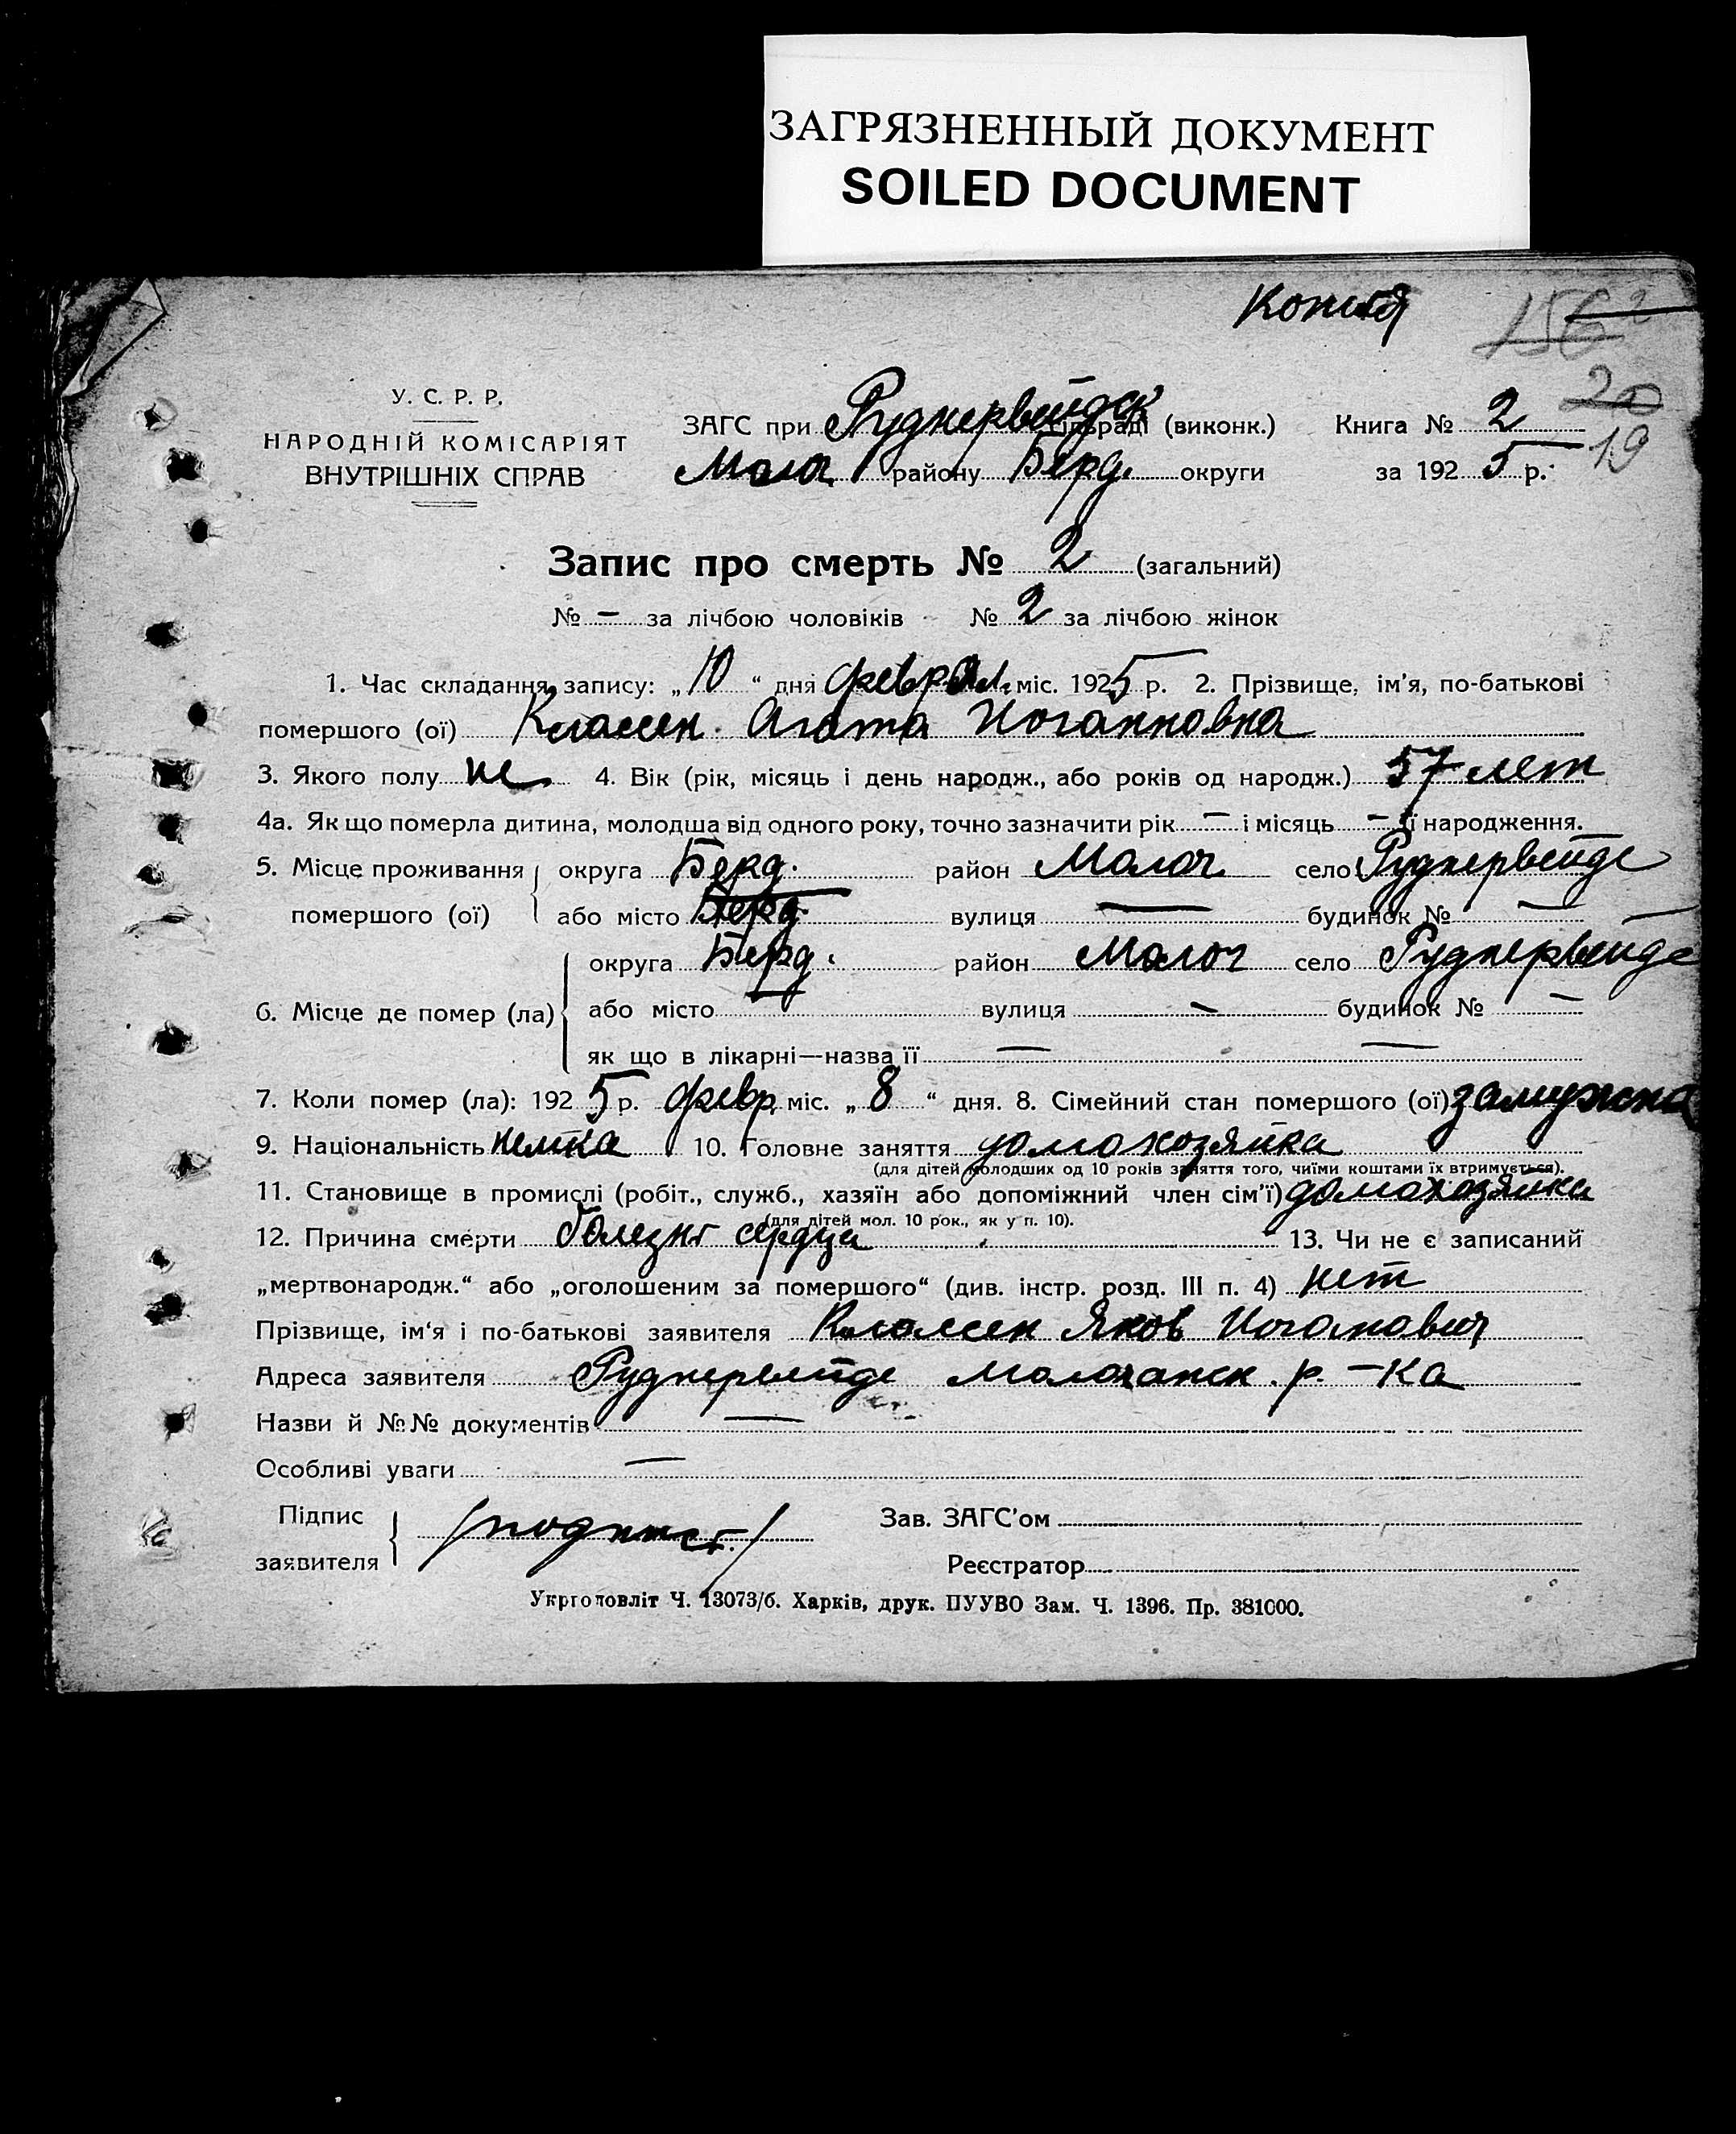 ЗАГРЯЗНЕННЫЙ ДОКУМЕНТ
SOILED DOCUMENT
Копия
156 2
20
19
У. С. Р. Р.
НАРОДНІЙ КОМІСАРІЯТ
ВНУТРІШНІХ СПРАВ
ЗАГС при Руднервейдск сільраді (виконк.) Книга № 2
Молоч району Берд. округи за 1925 р.
Запис про смерть № 2 (загальний)
№ – за лічбою чоловіків № 2 за лічбою жінок
1. Час складання запису: „10“ дня феврал. міс. 1925 р. 2. Прізвище, ім'я, по-батькові
помершого (ої) Классен Агата Иоганновна
3. Якого полу ж. 4. Вік (рік, місяць і день народж., або років од народж.) 57 лет
4а. Як що померла дитина, молодша від одного року, точно зазначити рік – і місяць – її народження.
5. Місце проживання округа Берд. район Молоч село Руднервейде
помершого (ої) або місто Берд. вулиця — будинок № —
округа Берд. район Молоч село Руднервейде
6. Місце де помер (ла) або місто — вулиця — будинок № —
як що в лікарні—назва її — —
7. Коли помер (ла): 1925 р. февр. міс. „8“ дня. 8. Сімейний стан помершого (ої) замужна
9. Національність немка 10. Головне заняття домохозяйка
(для дітей молодших од 10 років заняття того, чиїми коштами їх втримується).
11. Становище в промислі (робіт., служб., хазяїн або допоміжний член сім'ї) домохозяйка
(для дітей мол. 10 рок., як у п. 10).
12. Причина смерти болезнь сердца 13. Чи не є записаний
„мертвонародж.“ або „оголошеним за помершого“ (див. інстр. розд. III п. 4) нет
Прізвище, ім'я і по-батькові заявителя Классен Яков Иоганович
Адреса заявителя Руднервейде Молочанск. р.-ка
Назви й №№ документів —
Особливі уваги —
Підпис заявителя /подпись/ Зав. ЗАГС'ом
Реєстратор
Укрголовліт Ч. 13073/б. Харків, друк. ПУУВО Зам. Ч. 1396. Пр. 381000.